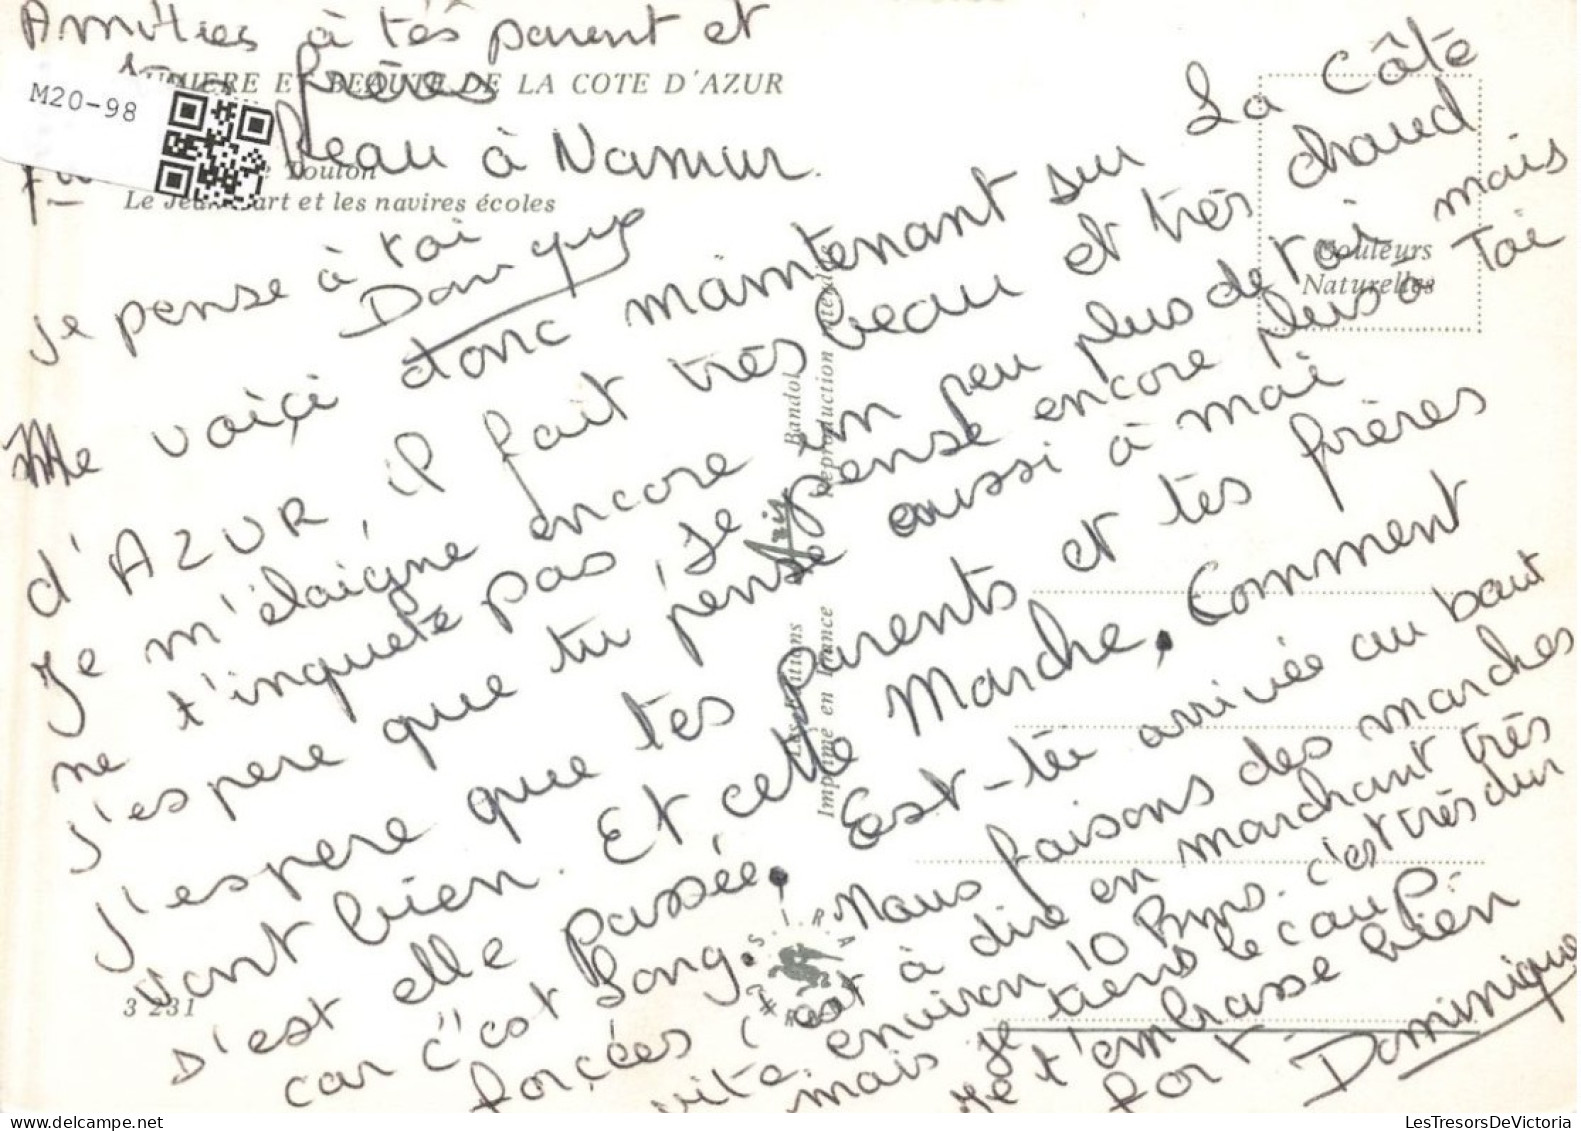 Amitiés à tés parent et
frères
LUMIERE ET BEAUTE DE LA COTE D'AZUR
M20-98
beau à Namur.
Toulon
Le Jean Bart et les navires écoles
je pense à toi
Domique
Me voiçi donc maintenant sur La Côte
d'AZUR, il fait très beau et très chaud
Je m'éloigne encore un peu plus de toi mais
ne t'inquete pas, Je pense encore plus à Toi
j'espere que tu pense aussi à moi
j'espere que tes parents et tes frères
vont bien. Et cette Marche. Comment
s'est elle passée. Est-tu arrivée au bout
car c'est Long. Nous faisons des marches
forçées c'est à dire en marchant très
vite environ 10 kms. c'est très dur
mais je tiens le coup.
Je t'embrasse bien
fort. Dominique
Couleurs
Naturelles
Les Editions
Aris
Bandol
Imprimé en France
Reproduction interdite
3 231
LesTresorsDeVictoria.com